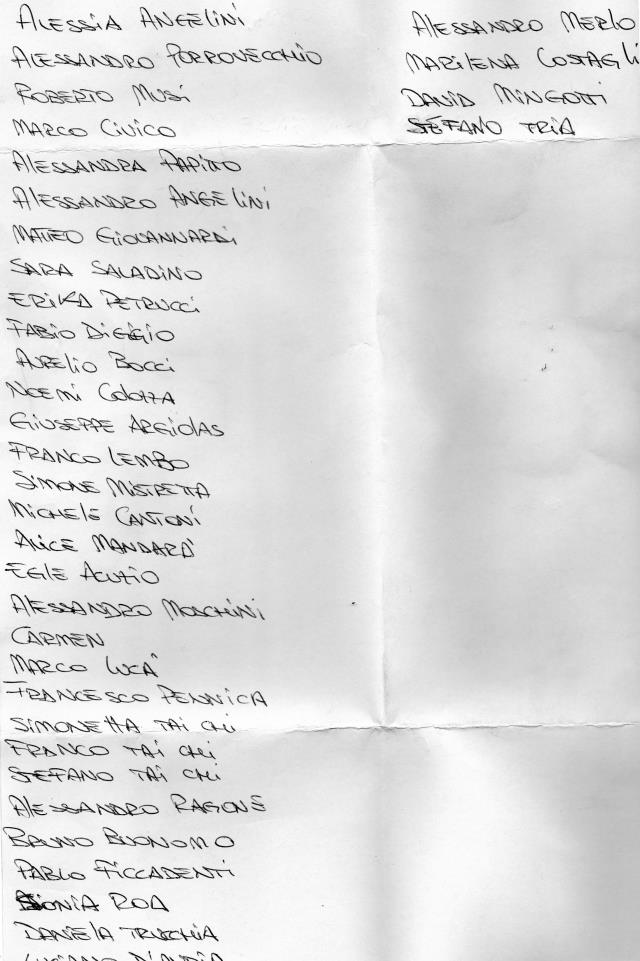 ALESSIA ANGELINI
ALESSANDRO PORROVECCHIO
ROBERTO MUSI
MARCO CIVICO
ALESSANDRA PAPITTO
ALESSANDRO ANGELINI
MATTEO GIOVANNARDI
SARA SALADINO
ERIKA PETRUCCI
FABIO DIGIGIO
AURELIO BOCCI
NOEMI
GIUSEPPE ARGIOLAS
FRANCO LEMBO
SIMONE MISTRETTA
MICHELE CANTONI
ALICE MANDARÀ
EGLE ACUTIO
ALESSANDRO MOSCHINI
CARMEN
MARCO LUCÀ
FRANCESCO PENNICA
SIMONETTA TAI CHI
FRANCO TAI CHI
STEFANO TAI CHI
ALESSANDRO RAGONE
BRUNO BUONOMO
PABLO FICCADENTI
SONIA ROA
DANIELA TRUCHIA
LUCIANO D'AURIA
ALESSANDRO MERLO
MARILENA COSTAGLI
DAVID MINGOTTI
STEFANO TRIA